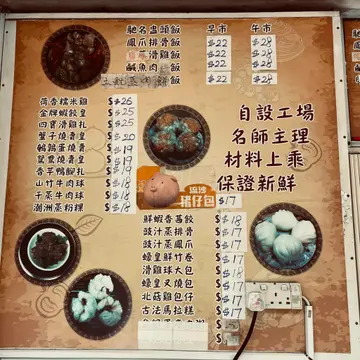 早市 午市
馳名盅頭飯 $22 $28
鳳爪排骨飯 $22 $28
鹹魚肉飯 $22 $28
土魷蒸肉餅飯 $22 $28
荷香糯米雞 $26
金牌蝦餃皇 $25
四寶滑雞扎 $25
蟹子燒賣皇 $20
鵪鶉蛋燒賣 $19
鴛鴦燒賣皇 $19
香芋鴨腳扎 $19
山竹牛肉球 $18
干蒸牛肉球 $18
潮洲蒸粉粿 $18
自設工場
名師主理
材料上乘
保證新鮮
流沙
豬仔包 $17
鮮蝦香茜餃 $18
豉汁蒸排骨 $17
豉汁蒸鳳爪 $18
蠔皇鮮竹卷 $17
滑雞球大包 $18
蠔皇叉燒包 $17
北菇雞包仔 $17
古法馬拉糕 $17